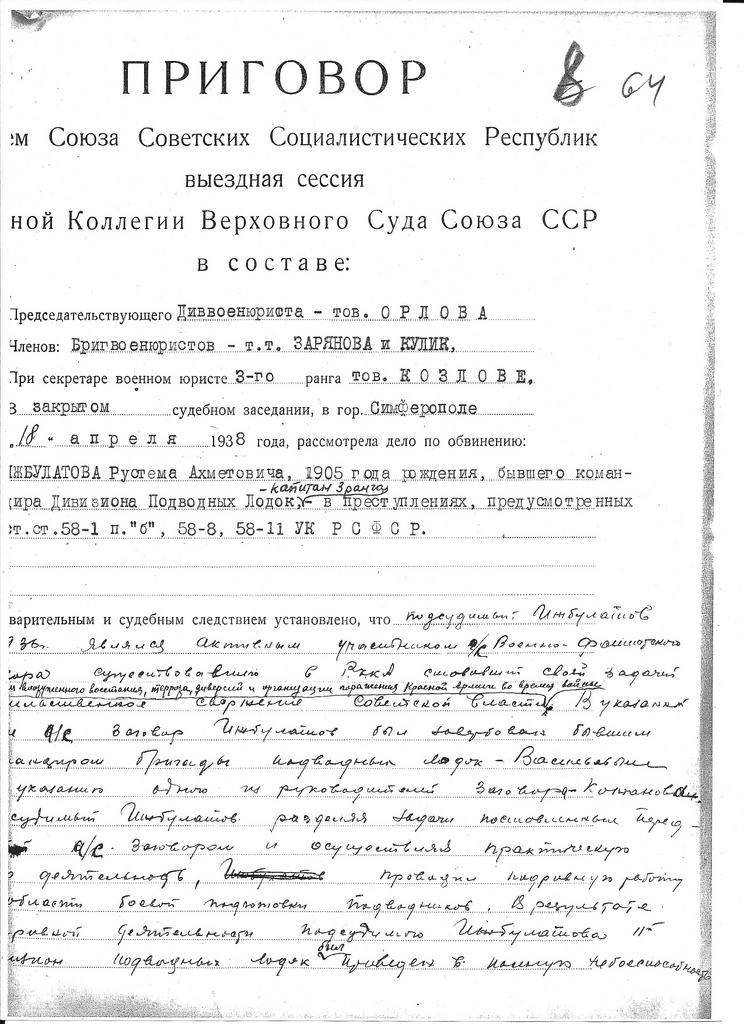 ПРИГОВОР
8 64
ем Союза Советских Социалистических Республик
выездная сессия
ной Коллегии Верховного Суда Союза ССР
в составе:
Председательствующего Диввоенюриста - тов. ОРЛОВА
Членов: Бригвоенюристов - т.т. ЗАРЯНОВА и КУЛИК,
При секретаре военном юристе 3-го ранга тов. КОЗЛОВЕ.
В закрытом судебном заседании, в гор. Симферополе
„18" апреля 1938 года, рассмотрела дело по обвинению:
ИЖБУЛАТОВА Рустема Ахметовича, 1905 года рождения, бывшего коман-
- капитан 3 ранга
дира Дивизиона Подводных Лодок, - в преступлениях, предусмотренных
ст.ст.58-1 п."б", 58-8, 58-11 УК РСФСР.
варительным и судебным следствием установлено, что подсудимый Инжбулатов
936. являлся активным участником а/с Военно-фашистского
вора существовавшего в РККА ставившего своей задачей
вооруженного восстания, террора, диверсий и организации поражения Красной армии во время войны
сильственное свержение Советской власти. В указанный
а/с заговор Инжбулатов был завербован бывшим
командиром Бригады подводных лодок - Васильевым
указанию одного из руководителей Заговора - Кожанова.
судимый Инжбулатов разделяя задачи поставленные перед
а/с. Заговором и осуществляя практическую
деятельность, проводил подрывную работу
области боевой подготовки Подводников. В результате
деятельности подсудимого Инжбулатова
был
дивизион подводных лодок приведен в полную небоеспособность